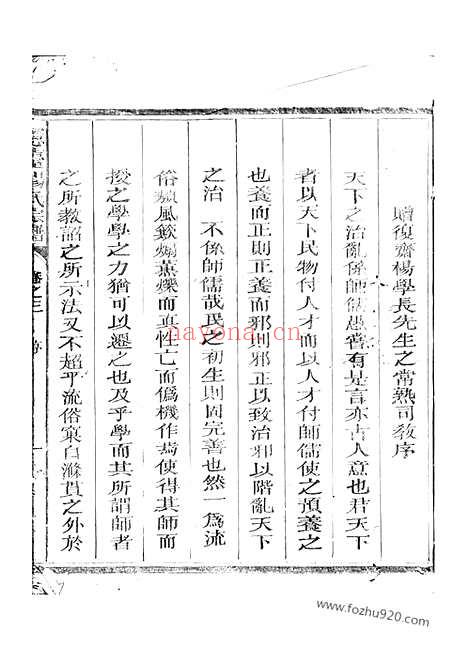 贈復齋楊學長先生之常熟司敎序
天下之治亂係師儒愚嘗有是言亦古人意也君天下
者以天下民物付人才而以人才付師儒使之預養之
也養而正則正養而邪則邪正以致治邪以階亂天下
之治 不係師儒哉民之初生則固完善也然一爲流
俗頽風鑠焗薰爍而眞性亡而僞機作焉使得其師而
授之學學之力猶可以遷之也及乎學而其所謂師者
之所教詔之所示法又不超乎流俗裒白滌貰之外於
楊氏宗譜
卷之三
nayona.cn
www.fozhu920.com